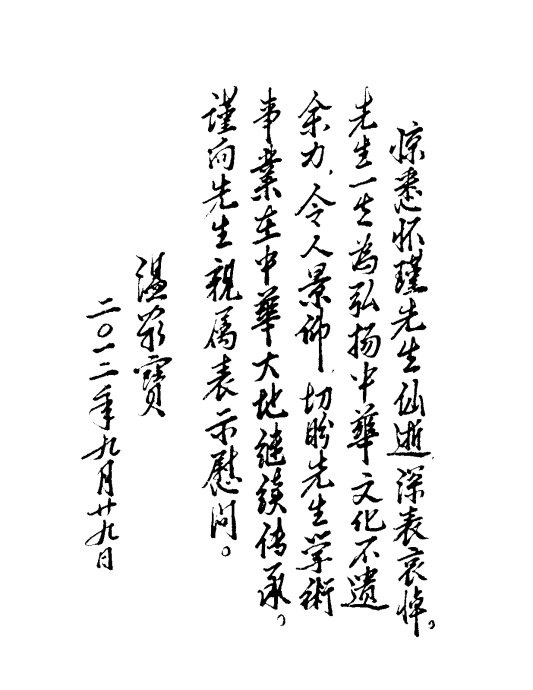 惊悉怀瑾先生仙逝深表哀悼。
先生一生為弘扬中華文化不遗
余力,令人景仰,切盼先生学術
事業在中華大地继续传承。
谨向先生親属表示慰问。
温家寶
二〇一二年九月廿九日